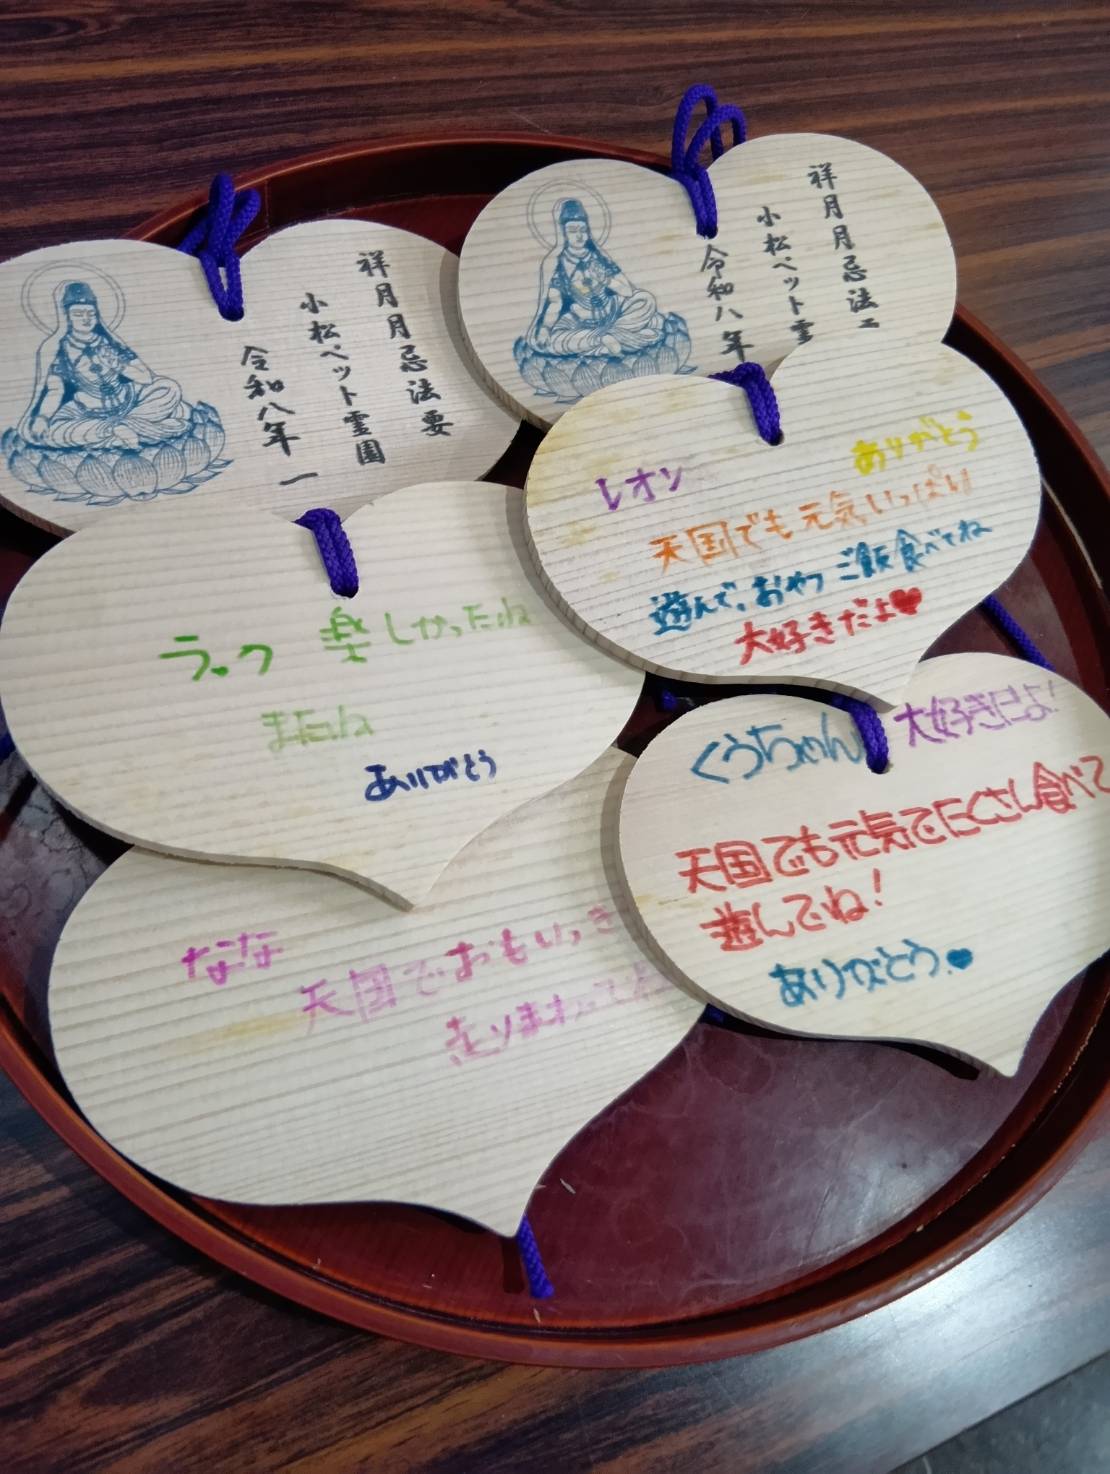 祥月月忌法要
小松ペット霊園
令和八年 一
祥月月忌法
小松ペット霊
令和八年
レオン
ありがとう
天国でも元気いっぱい
遊んで、おやつ ご飯食べてね
大好きだよ♥
ラック 楽しかったね
またね
ありがとう
くうちゃん 大好きだよ!
天国でも元気でたくさん食べて
遊んでね!
ありがとう♥
なな
天国でおもいっき
走りまわってね